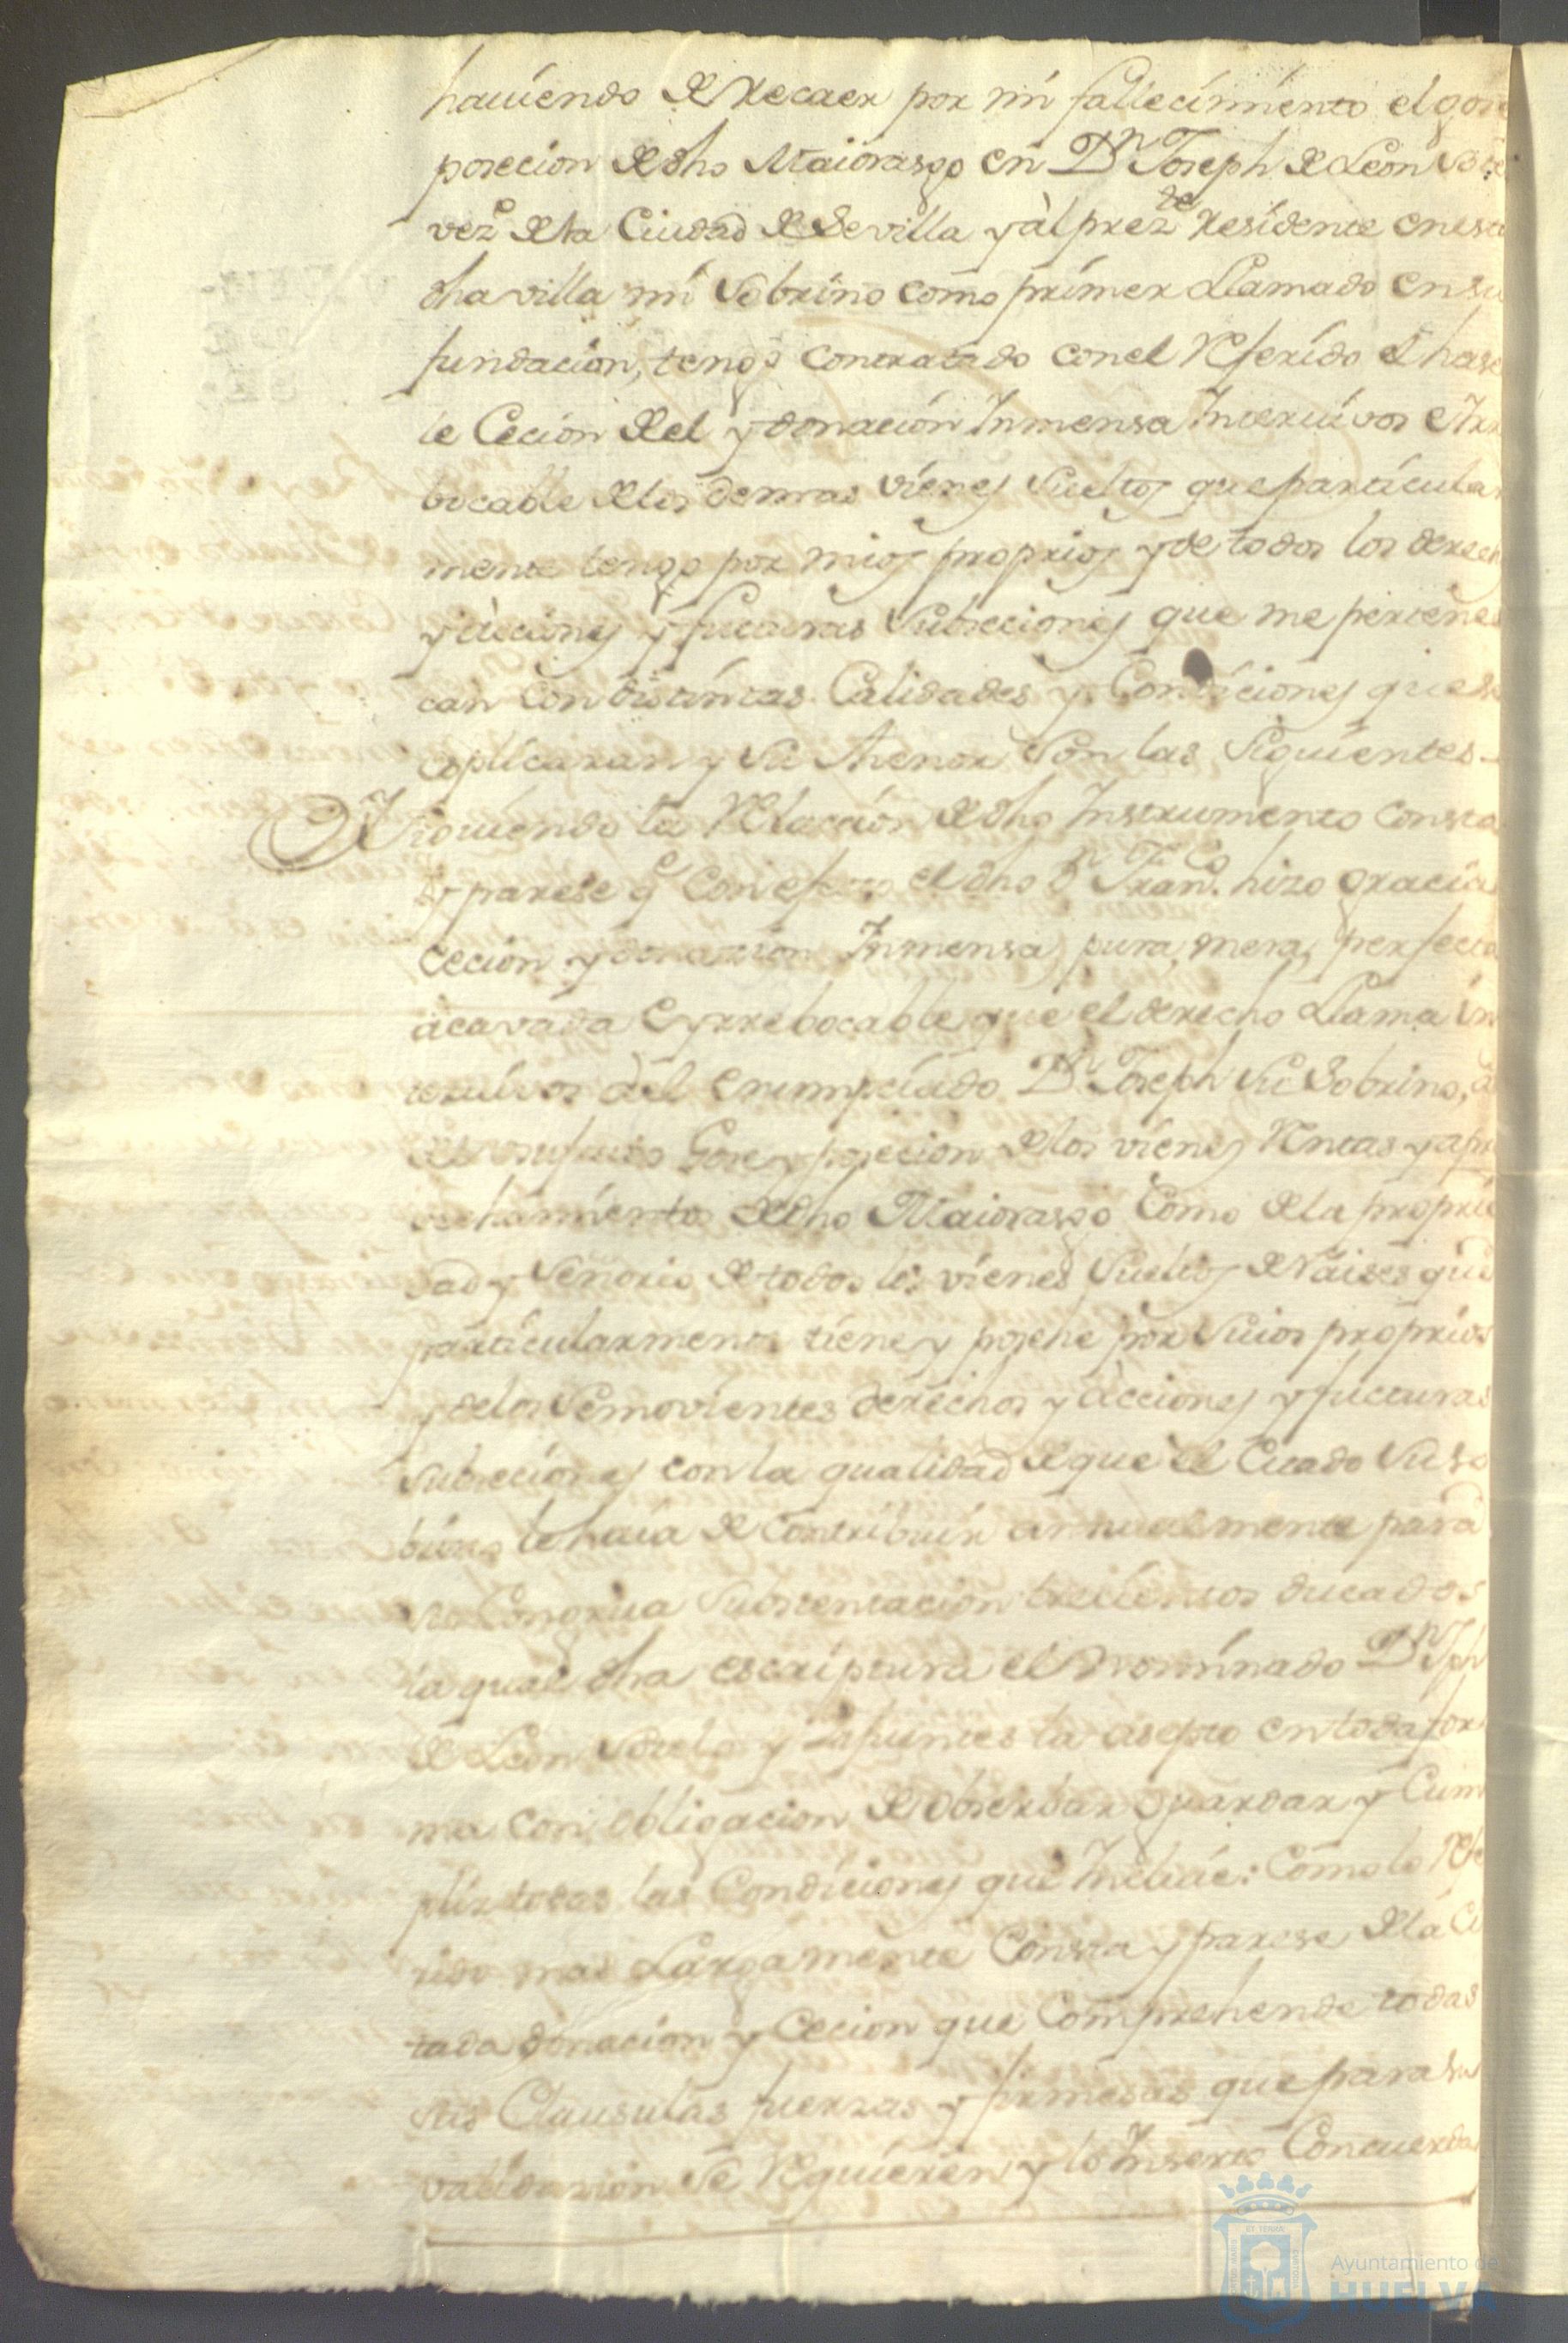 haviendo de Recaer por mi fallecimiento el gose
posecion de dho Maiorasgo en Dn Joseph de Leon
vezo de la Ciudad de Sevilla y àl prezte Residente en esta
dha villa mi Sobrino como primer Llamado en su
fundacion, tengo contratado con el Referido el hase
le Cecion del y donación Inmensa Intervivos e Irr
bocable de los demas vienes Sueltos que particular
mente tengo por mios proprios y de todos los derech
y àcciones y futuras Subseciones que me pertenes
can con distintas Calidades y Condiciones que se
esplicaran y su thenor son las siguientes
Y Siguiendo la Relacion de dho Instrumento consta
y parese qe con efecto el dho Dn Franco hizo gracia
cecion y donazion Inmensa, pura, mera, perfecta
acavada e yrrebocable que el derecho Llama in
tervivos àl enunpciado Dn Joseph su Sobrino, a
del usufruto Gose y posecion de los vienes Rentas y apro
vechamientos de dho Maiorasgo Como de la proprie
dad y Señorio de todos los vienes Sueltos de Raises que
particularmente tiene y posehe por suios proprios
y de los Semovientes derechos y àcciones y futturas
Subseciones con la qualidad de que el Citado su so
brino le havia de contribuir annualmente para
su Congrua Sustentacion trecientos ducados
la qual dha escriptura el Nominado Dn Jph
de Leon Sotelo y Lafuentes la asepto en toda for
ma con obligacion de obserbar guardar y Cum
plir todas las Condiciones que Incluie: Como lo Refe
rido mas Largamente Consta y parese de la Ci
tada donacion y Cecion que Comprehende todas
sus Clausulas fuerzas y firmesas que para su
validazion se Requieren y lo Inserto Concuerda
Ayuntamiento de
HUELVA